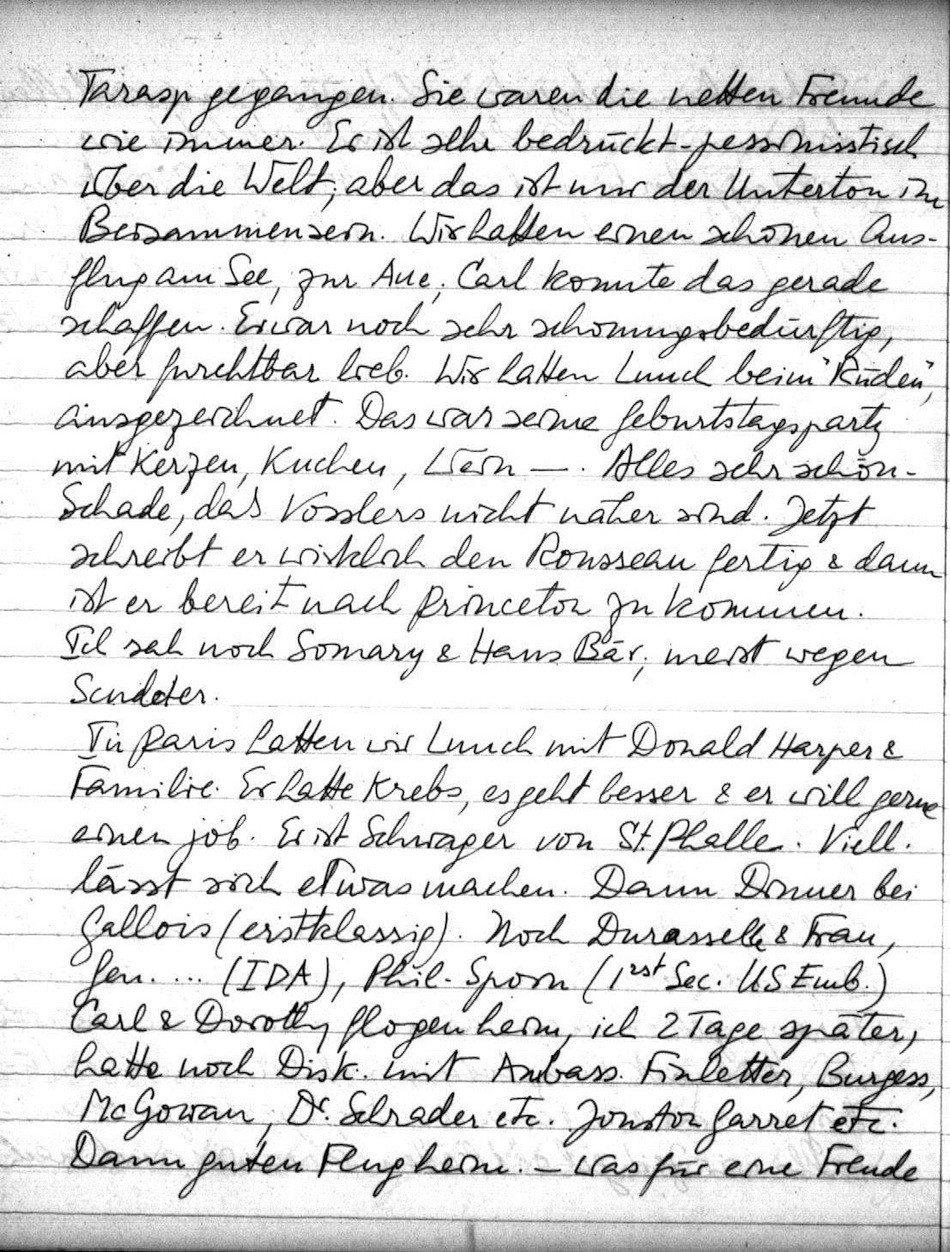 Tarasp gegangen. Sie waren die netten Freunde
wie immer. Er ist sehr bedrückt-pessimistisch
über die Welt; aber das ist nur der Unterton im
Beisammensein. Wir hatten einen schönen Aus-
flug am See, zur Aue; Carl konnte das gerade
schaffen. Er war noch sehr schonungsbedürftig,
aber furchtbar lieb. Wir hatten Lunch beim "Rüden",
ausgezeichnet. Das war seine Geburtstagsparty
mit Kerzen, Kuchen, Wein —. Alles sehr schön-
Schade, dass Vosslers nicht näher sind. Jetzt
schreibt er wirklich den Rousseau fertig & dann
ist er bereit nach Princeton zu kommen.
Ich sah noch Somary & Hans Bär; meist wegen
In Paris hatten wir Lunch mit Donald Harper &
Familie. Er hatte Krebs, es geht besser & er will gerne
einen job. Er ist Schwager von St. Phalle. Viell.
lässt sich etwas machen. Dann Dinner bei
Gallois (erstklassig). Noch Durasselle & Frau,
Gen. .... (IDA), Phil. Sporn (1rst Sec. US Emb.)
Carl & Dorothy flogen heim, ich 2 Tage später,
hatte noch Disk. mit Ambass. Finletter, Burgess,
McGowan, Dr. Schrader etc. Garret etc.
Dann guten Flug heim. – was für eine Freude